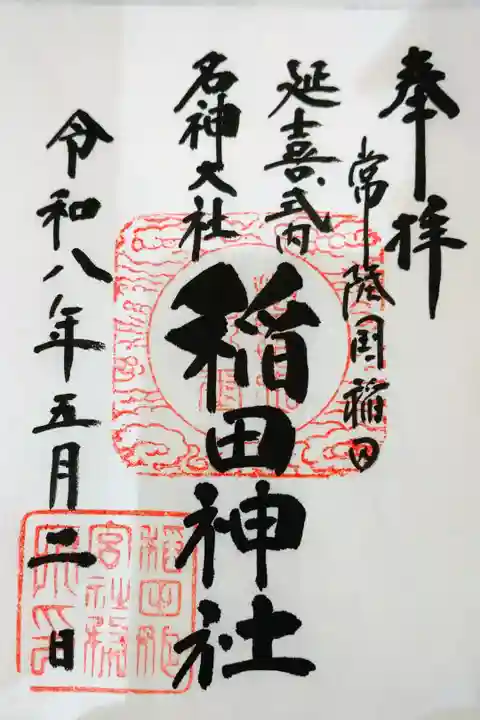 奉拝
常陸国稲田
延喜式内
名神大社
稲田神社
令和八年五月二日